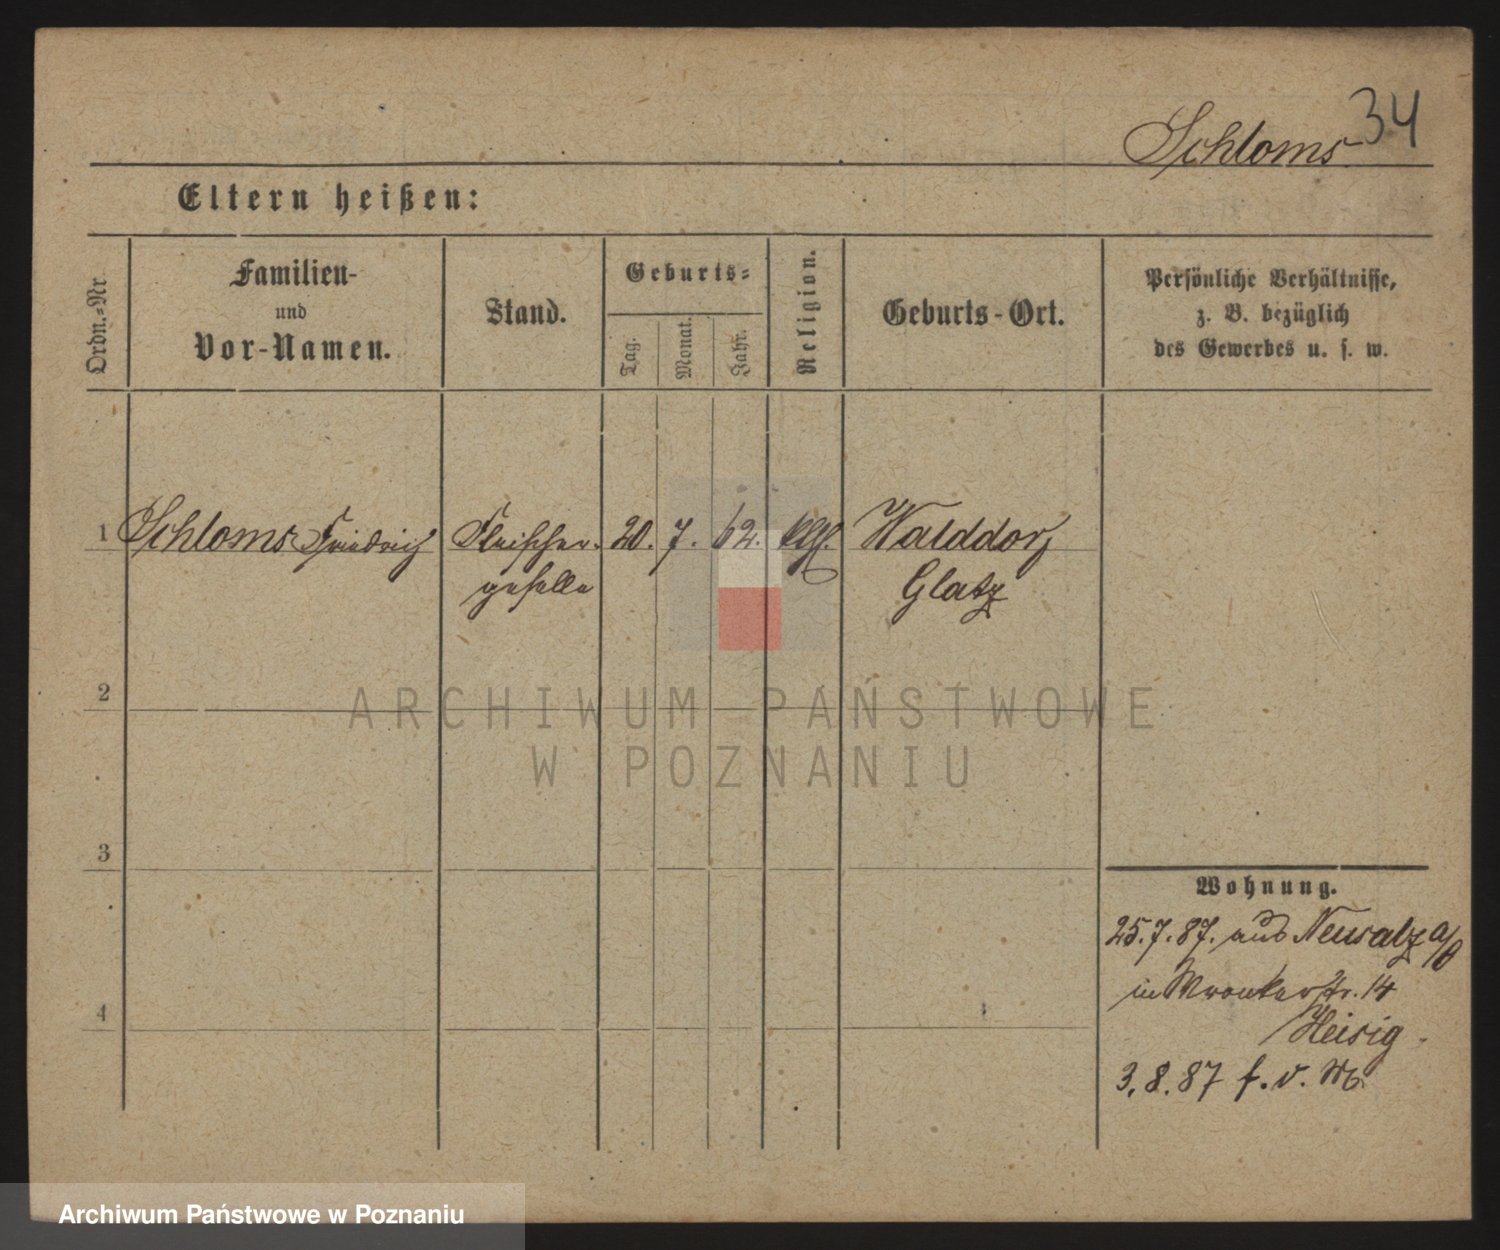 34
Schloms
Eltern heißen:
Ordn.-Nr.
Familien-
und
Vor-Namen.
Stand.
Geburts-
Tag.
Monat.
Jahr.
Religion.
Geburts-Ort.
Persönliche Verhältnisse,
z. B. bezüglich
des Gewerbes u. s. w.
1 Schloms Friedrich Fleischer- 20. 7. 62. Walddorf
geselle Glatz
2
ARCHIWUM PAŃSTWOWE
W POZNANIU
3
Wohnung.
25.7.87. aus Neusalz a/O
in Wronkerstr. 14
Heisig
4
3.8.87 f. v.
Archiwum Państwowe w Poznaniu